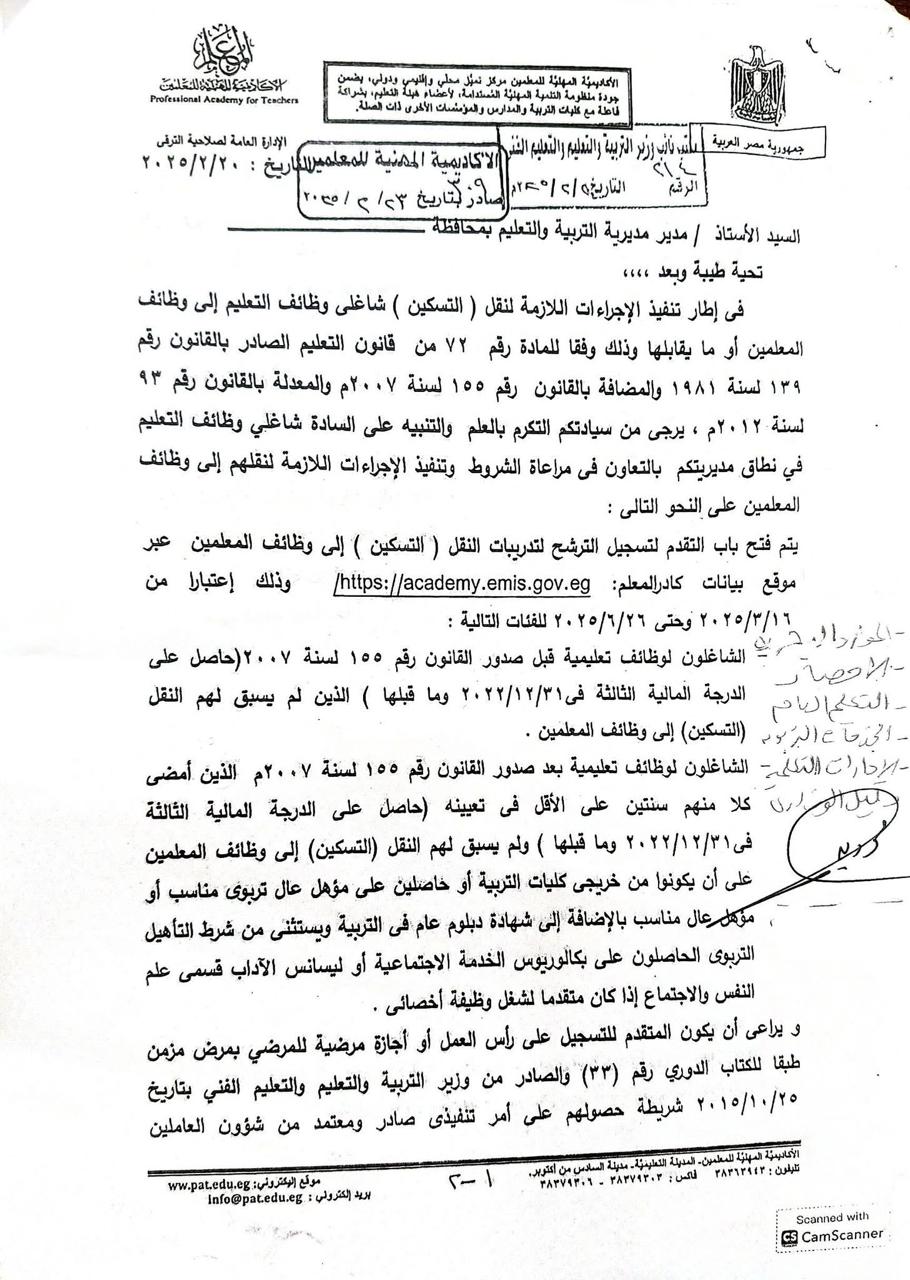 المعلم
الأكاديمية المهنية للمعلمين
Professional Academy for Teachers
الأكاديميّة المهنيّة للمعلمين مركز تميّز محلّي وإقليمي ودولي، يضمن
جودة منظومة التنمية المهنيّة المُستدامة، لأعضاء هيئة التعليم، بشراكة
فاعلة مع كليات التربية والمدارس والمؤسّسات الأخرى ذات الصلة.
جمهورية مصر العربية
الإدارة العامة لصلاحية الترقى
التاريخ : ٢٠٢٥/٢/٢٠
الاكاديمية المهنية للمعلمين
صادر
بتاريخ ٢٣ / ٢ / ٢٠٢٥
مكتب نائب وزير التربية والتعليم والتعليم الفنى
الرقم ٢١٤
التاريخ
السيد الأستاذ / مدير مديرية التربية والتعليم بمحافظة
تحية طيبة وبعد ،،،،
فى إطار تنفيذ الإجراءات اللازمة لنقل ( التسكين ) شاغلى وظائف التعليم إلى وظائف
المعلمين أو ما يقابلها وذلك وفقا للمادة رقم ٧٢ من قانون التعليم الصادر بالقانون رقم
١٣٩ لسنة ١٩٨١ والمضافة بالقانون رقم ١٥٥ لسنة ٢٠٠٧م والمعدلة بالقانون رقم ٩٣
لسنة ٢٠١٢م ، يرجى من سيادتكم التكرم بالعلم والتنبيه على السادة شاغلي وظائف التعليم
في نطاق مديريتكم بالتعاون فى مراعاة الشروط وتنفيذ الإجراءات اللازمة لنقلهم إلى وظائف
المعلمين على النحو التالى :
يتم فتح باب التقدم لتسجيل الترشح لتدريبات النقل ( التسكين ) إلى وظائف المعلمين عبر
موقع بيانات كادرالمعلم: https://academy.emis.gov.eg/ وذلك إعتبارا من
٢٠٢٥/٣/١٦ وحتى ٢٠٢٥/٦/٢٦ للفئات التالية :
الشاغلون لوظائف تعليمية قبل صدور القانون رقم ١٥٥ لسنة ٢٠٠٧(حاصل على
الدرجة المالية الثالثة فى٢٠٢٢/١٢/٣١ وما قبلها ) الذين لم يسبق لهم النقل
(التسكين) إلى وظائف المعلمين .
الشاغلون لوظائف تعليمية بعد صدور القانون رقم ١٥٥ لسنة ٢٠٠٧م الذين أمضى
كلا منهم سنتين على الأقل فى تعيينه (حاصل على الدرجة المالية الثالثة
فى٢٠٢٢/١٢/٣١ وما قبلها ) ولم يسبق لهم النقل (التسكين) إلى وظائف المعلمين
على أن يكونوا من خريجى كليات التربية أو حاصلين على مؤهل عال تربوى مناسب أو
مؤهل عال مناسب بالإضافة إلى شهادة دبلوم عام فى التربية ويستثنى من شرط التأهيل
التربوى الحاصلون على بكالوريوس الخدمة الاجتماعية أو ليسانس الآداب قسمى علم
النفس والاجتماع إذا كان متقدما لشغل وظيفة أخصائى .
و يراعى أن يكون المتقدم للتسجيل على رأس العمل أو أجازة مرضية للمرضي بمرض مزمن
طبقا للكتاب الدوري رقم (٣٣) والصادر من وزير التربية والتعليم والتعليم الفني بتاريخ
٢٠١٥/١٠/٢٥ شريطة حصولهم على أمر تنفيذى صادر ومعتمد من شؤون العاملين
- الموارد البشرية
- الإحصاء
- التعليم العام
- الخدمات التربوية
- الإدارات التعليمية
الأكاديميّة المهنيّة للمعلمين- المدينة التعليميّة- مدينة السادس من أكتوبر.
تليفون: ٣٨٣٦٣٩٤٣ فاكس : ٣٨٣٧٩٣٠٣ - ٣٨٣٧٩٣٠٦
١-٢
موقع إليكتروني: www.pat.edu.eg
بريد إلكتروني : info@pat.edu.eg
Scanned with
CS CamScanner